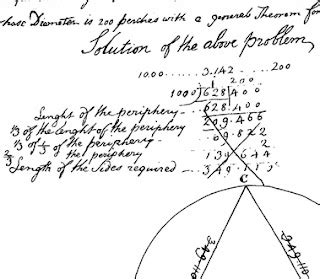 whose Diameter is 200 perches with a general Theorem for
Solution of the above problem,
1000 ...... 3.142 ... 200
200
1000)628400
Lenght of the periphery -- 628.400
⅓ of the Lenght of the periphery 209.466
⅓ of ⅓ of the periphery -- 69.822
⅔ the periphery
Length of the Sides required -- 349.111
C
349.11